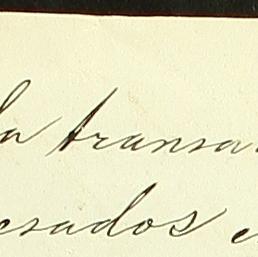 la transa
esados